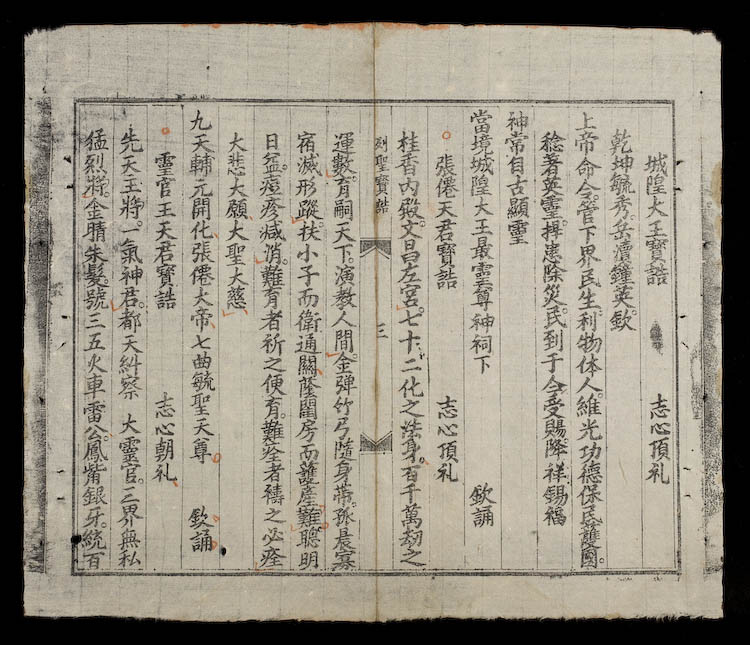 城隍大王寶誥 志心頂礼
乾坤毓秀岳瀆鍾英欽
上帝命令管下界民生利物体人維光功德保民護國
稔著英靈捍患除災民到于今受賜降祥錫福
神常自古顯靈
當境城隍大王最靈至尊神祠下 欽誦
張僊天君寶誥 志心頂礼
桂香內殿文昌左宮七十二化之法身百千萬劫之
列聖寶誥 三
運數育嗣天下演教人間金弹竹弓隨身帶孤晨寡
宿滅形蹤扶小子而衛通關蔭閨房而護產難聰明
日益痘疹減消難育者祈之便育難痊者禱之必痊
大悲大願大聖大慈
九天輔元開化張僊大帝七曲毓聖天尊 欽誦
靈官王天君寶誥 志心朝礼
先天王將一氣神君都天糾察 大靈官三界無私
猛烈將金睛朱髮號三五火車雷公鳳觜銀牙統百